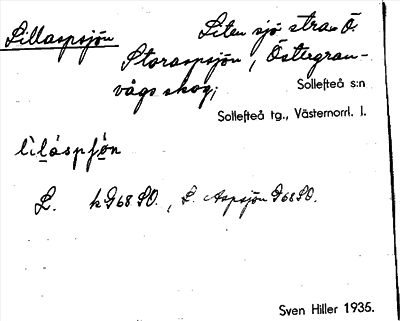 Lillaspsjön
Liten sjö strax Ö.
Storaspsjön, Östergran-
vågs skog;
Sollefteå s:n
Sollefteå tg., Västernorrl. l.
L. kG68SO., L. Aspsjön G68SO.
Sven Hiller 1935.